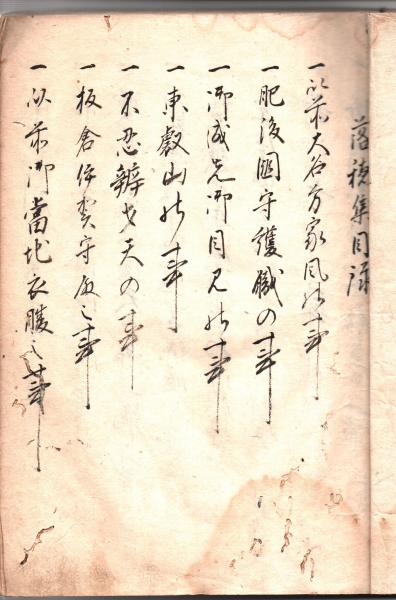 落穂集目録
一 以前大名方家風之事
一 肥後国守護職の事
一 御成先御目見之事
一 東叡山之事
一 不忍辨才天の事
一 板倉伊賀守殿之事
一 以前御當地衣服之事